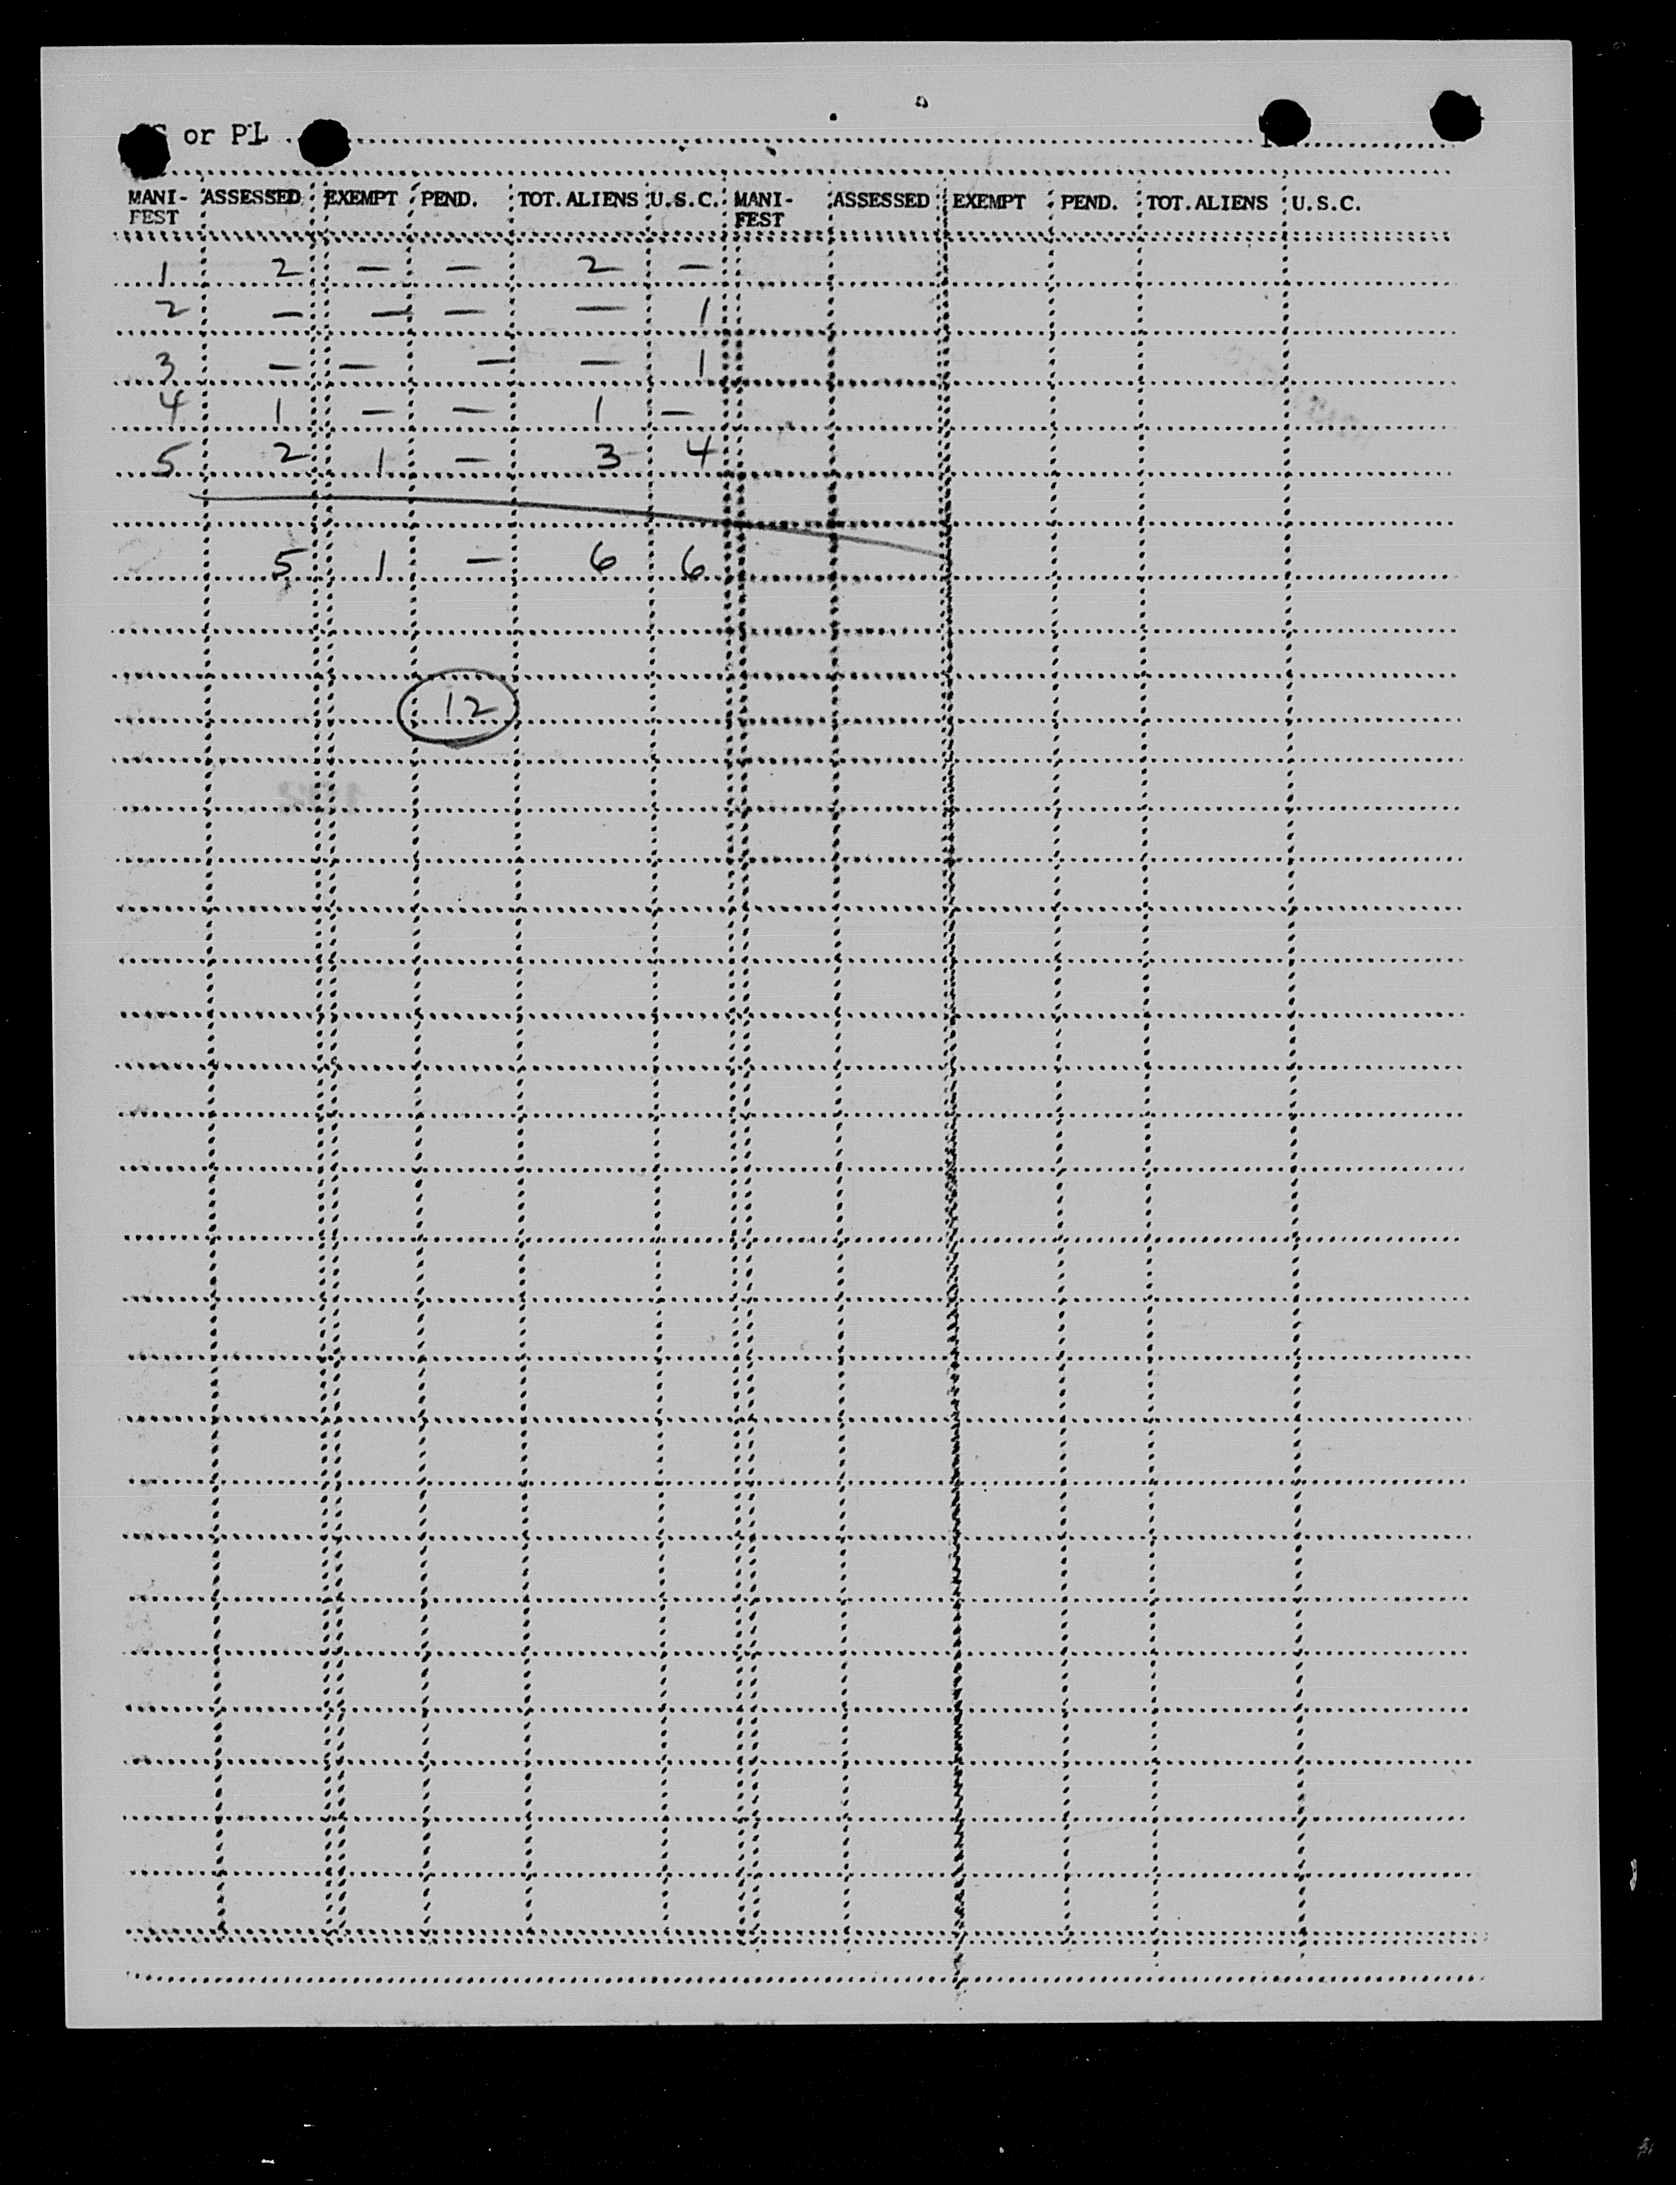 or PL
MANI- ASSESSED EXEMPT PEND. TOT. ALIENS U.S.C. MANI- ASSESSED EXEMPT PEND. TOT. ALIENS U.S.C.
FEST FEST
1 2 — — 2 —
2 — — — — 1
3 — — — — 1
4 1 — — 1 —
5 2 1 — 3 4
5 1 — 6 6
12